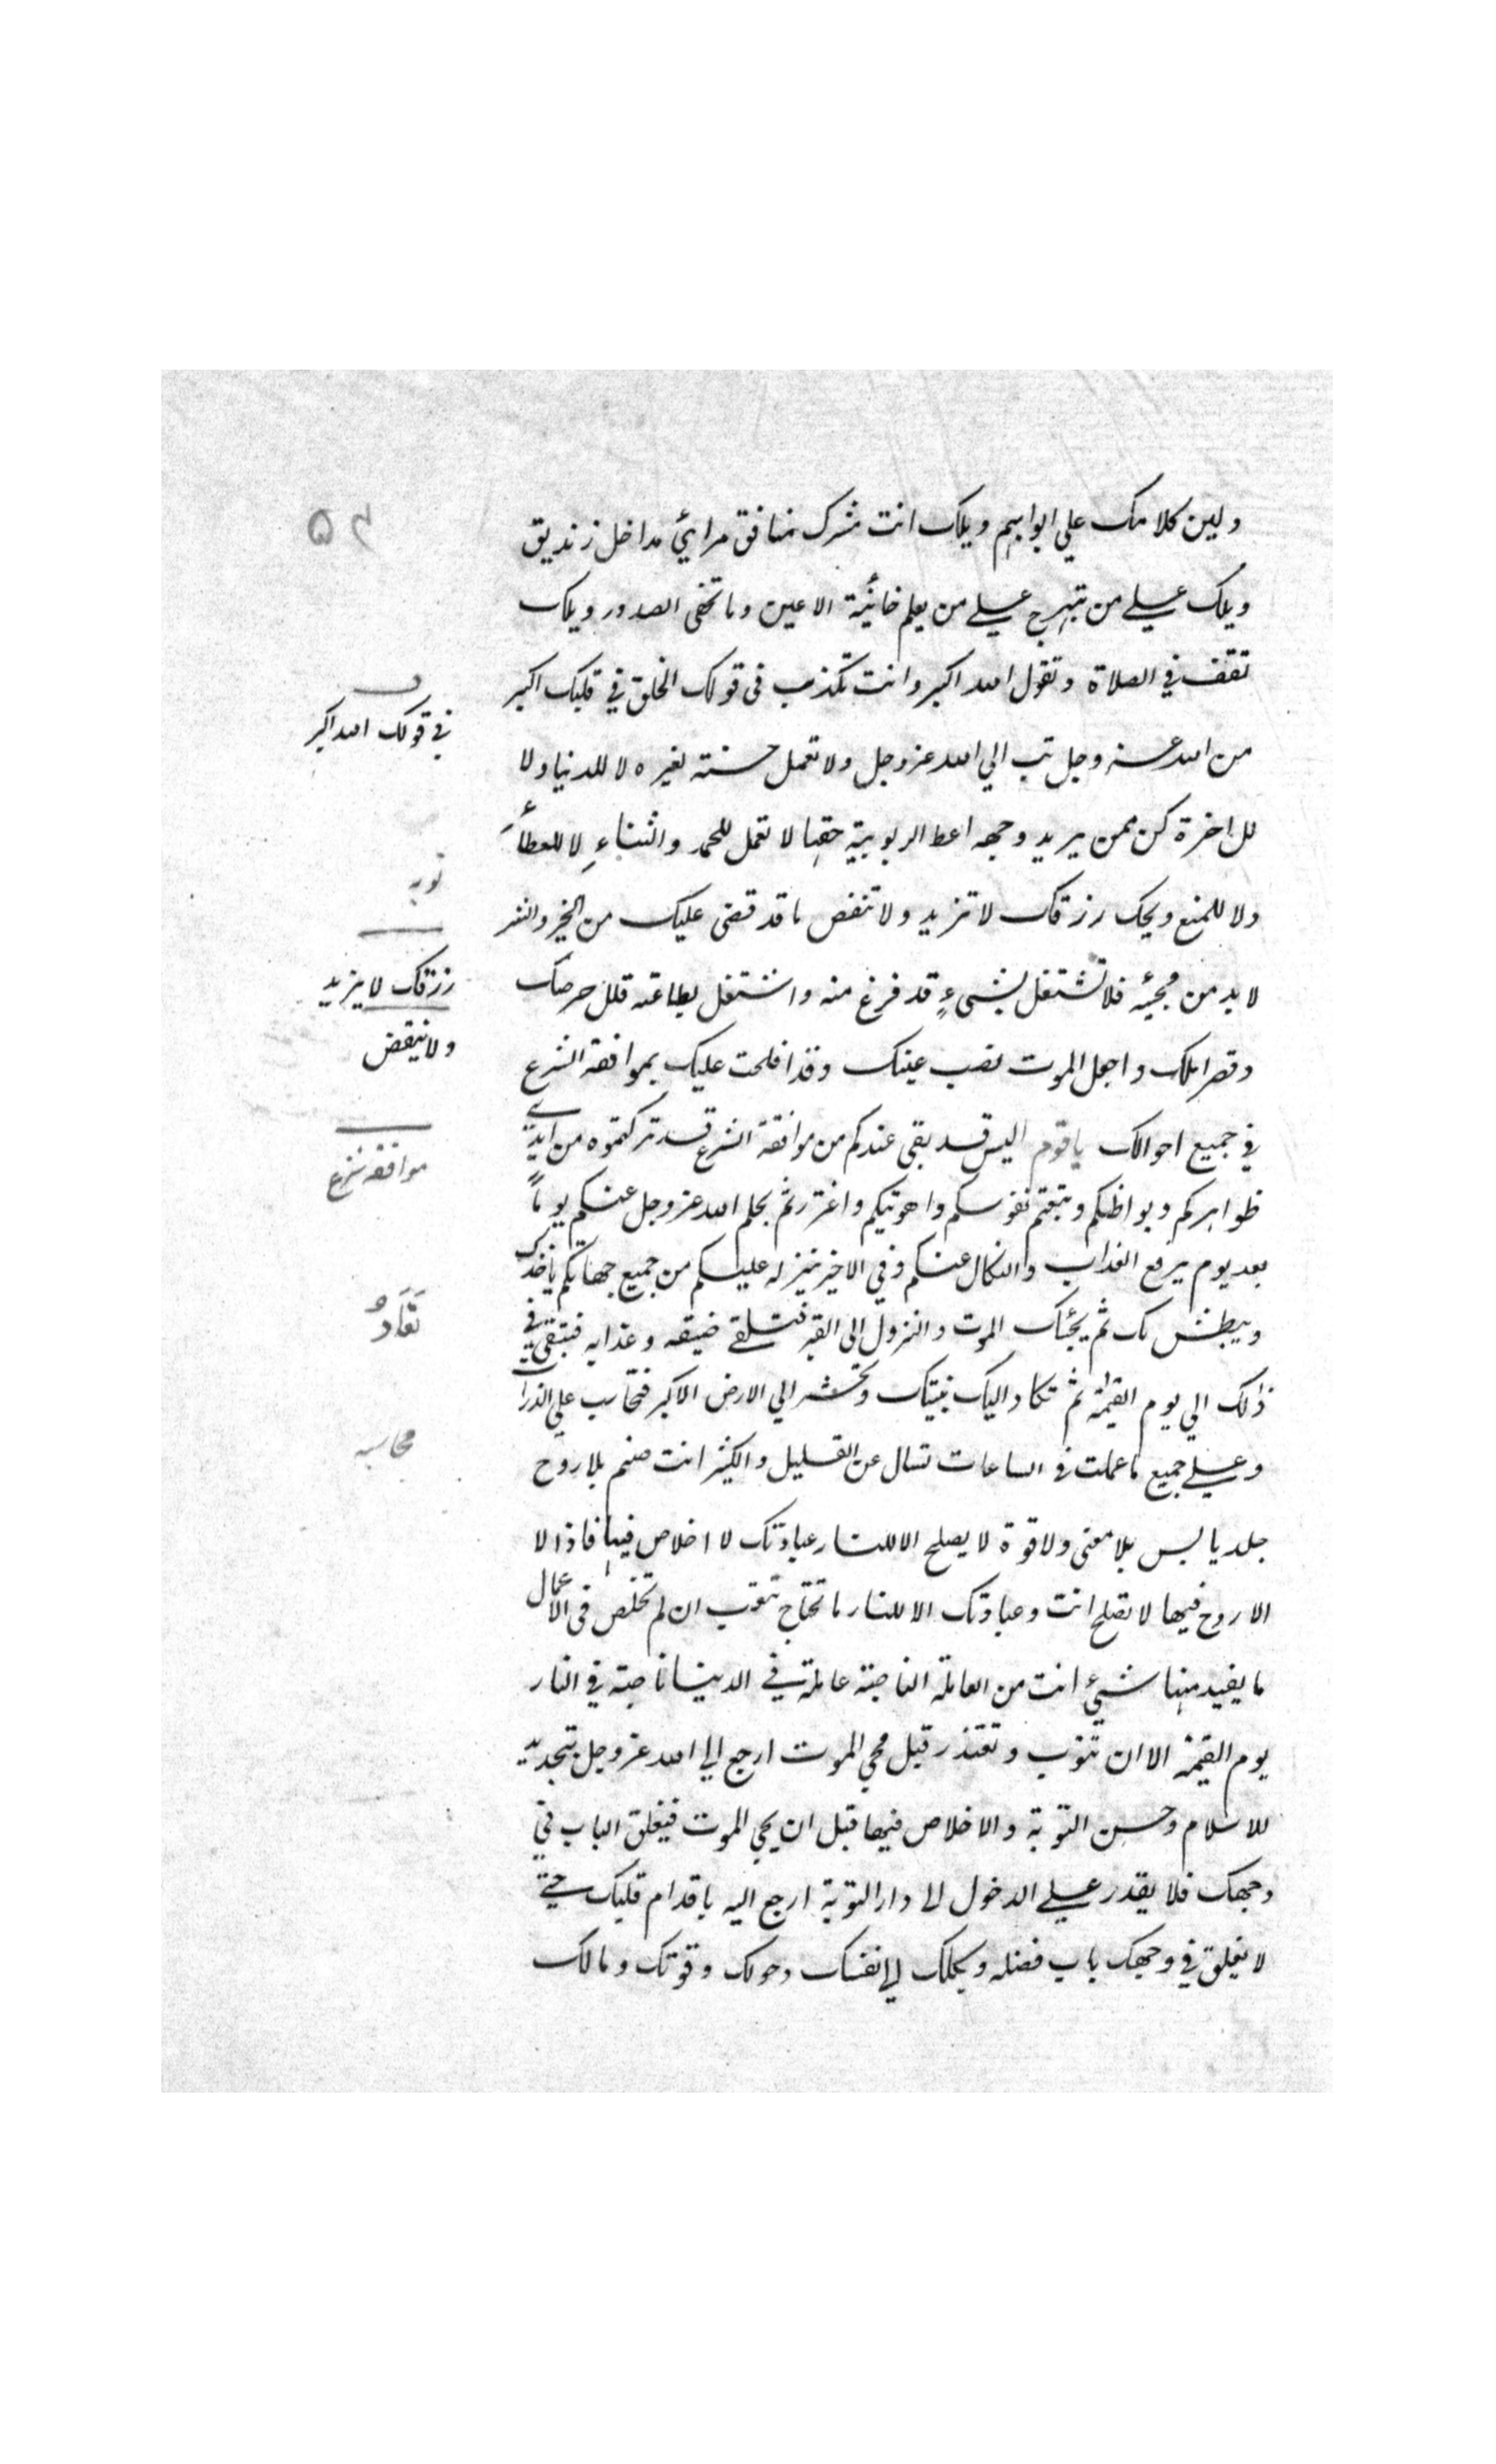 ولين كلامك علي ابوابهم ويلك انت مشرك منافق مرائي مداخل زنديق
ويلك علي من تبهرج علي من يعلم خائنة الاعين وما تخفى الصدور ويلك
تقف في الصلاة وتقول الله اكبر وانت تكذب في قولك الخلق في قلبك اكبر
من الله عز وجل تب الي الله عز وجل ولا تعمل حسنة لغيره لا للدنيا ولا
للاخرة كن ممن يريد وجهه اعط الربوبية حقها لا تعمل للحمد والثناءِ لا للعطاءِ
ولا للمنع ويحك رزقك لا تزيد ولا تنقص ما قد قضى عليك من الخير والشر
لا بد من مجيئه فلا تشتغل بشيءٍ قد فرغ منه واشتغل بطاعته قلل حرصك
وقصر املك واجعل الموت نصب عينك وقد افلحت عليك بموافقة الشرع
في جميع احوالك ياقوم اليس قد بقى عندكم من موافقة الشرع قد تركتموه من ايدي
ظواهركم وبواطنكم وتبعتم نفوسكم واهويتكم واغتررتم بحلم الله عز وجل عنكم يوماً
بعد يوم يرفع العذاب والنكال عنكم وفي الاخير ينزله عليكم من جميع جهاتكم ياخذك
ويبطش بك ثم يجئك الموت والنزول الى القبر فتلقى ضيقه وعذابه فتبقى في
ذلك الي يوم القيمة ثم تكاد اليك بنيتك وتحشر الي الارض الاكبر فتحاسب علي الذرات
وعلي جميع ما عملت في الساعات تسال عن القليل والكثير انت صنم بلا روح
جلد يابس بلا معنى ولا قوة لا يصلح الا للنار عبادتك لا اخلاص فيها فاذا لا
الا روح فيها لا تصلح انت وعبادتك الا للنار ما تحتاج تتعب ان لم تخلص فى الاعمال
ما يفيد منها شيئ انت من العاملة الناصبة عاملة في الدنيا ناصبة في النار
يوم القيمة الا ان تتوب وتعتذر قبل مجي الموت ارجع الي الله عز وجل بتجديد
للاسلام وحسن التوبة والاخلاص فيها قبل ان يجي الموت فيغلق الباب في
وجهك فلا يقدر علي الدخول الى دار التوبة ارجع اليه باقدام قلبك حتى
لا يغلق في وجهك باب فضله ويكلك الي نفسك وحولك وقوتك ومالك
٥٢
في قولك الله اكبر
توبه
رزقك لا يزيد
ولا ينقص
موافقه شرع
تعَادُ
محاسبه